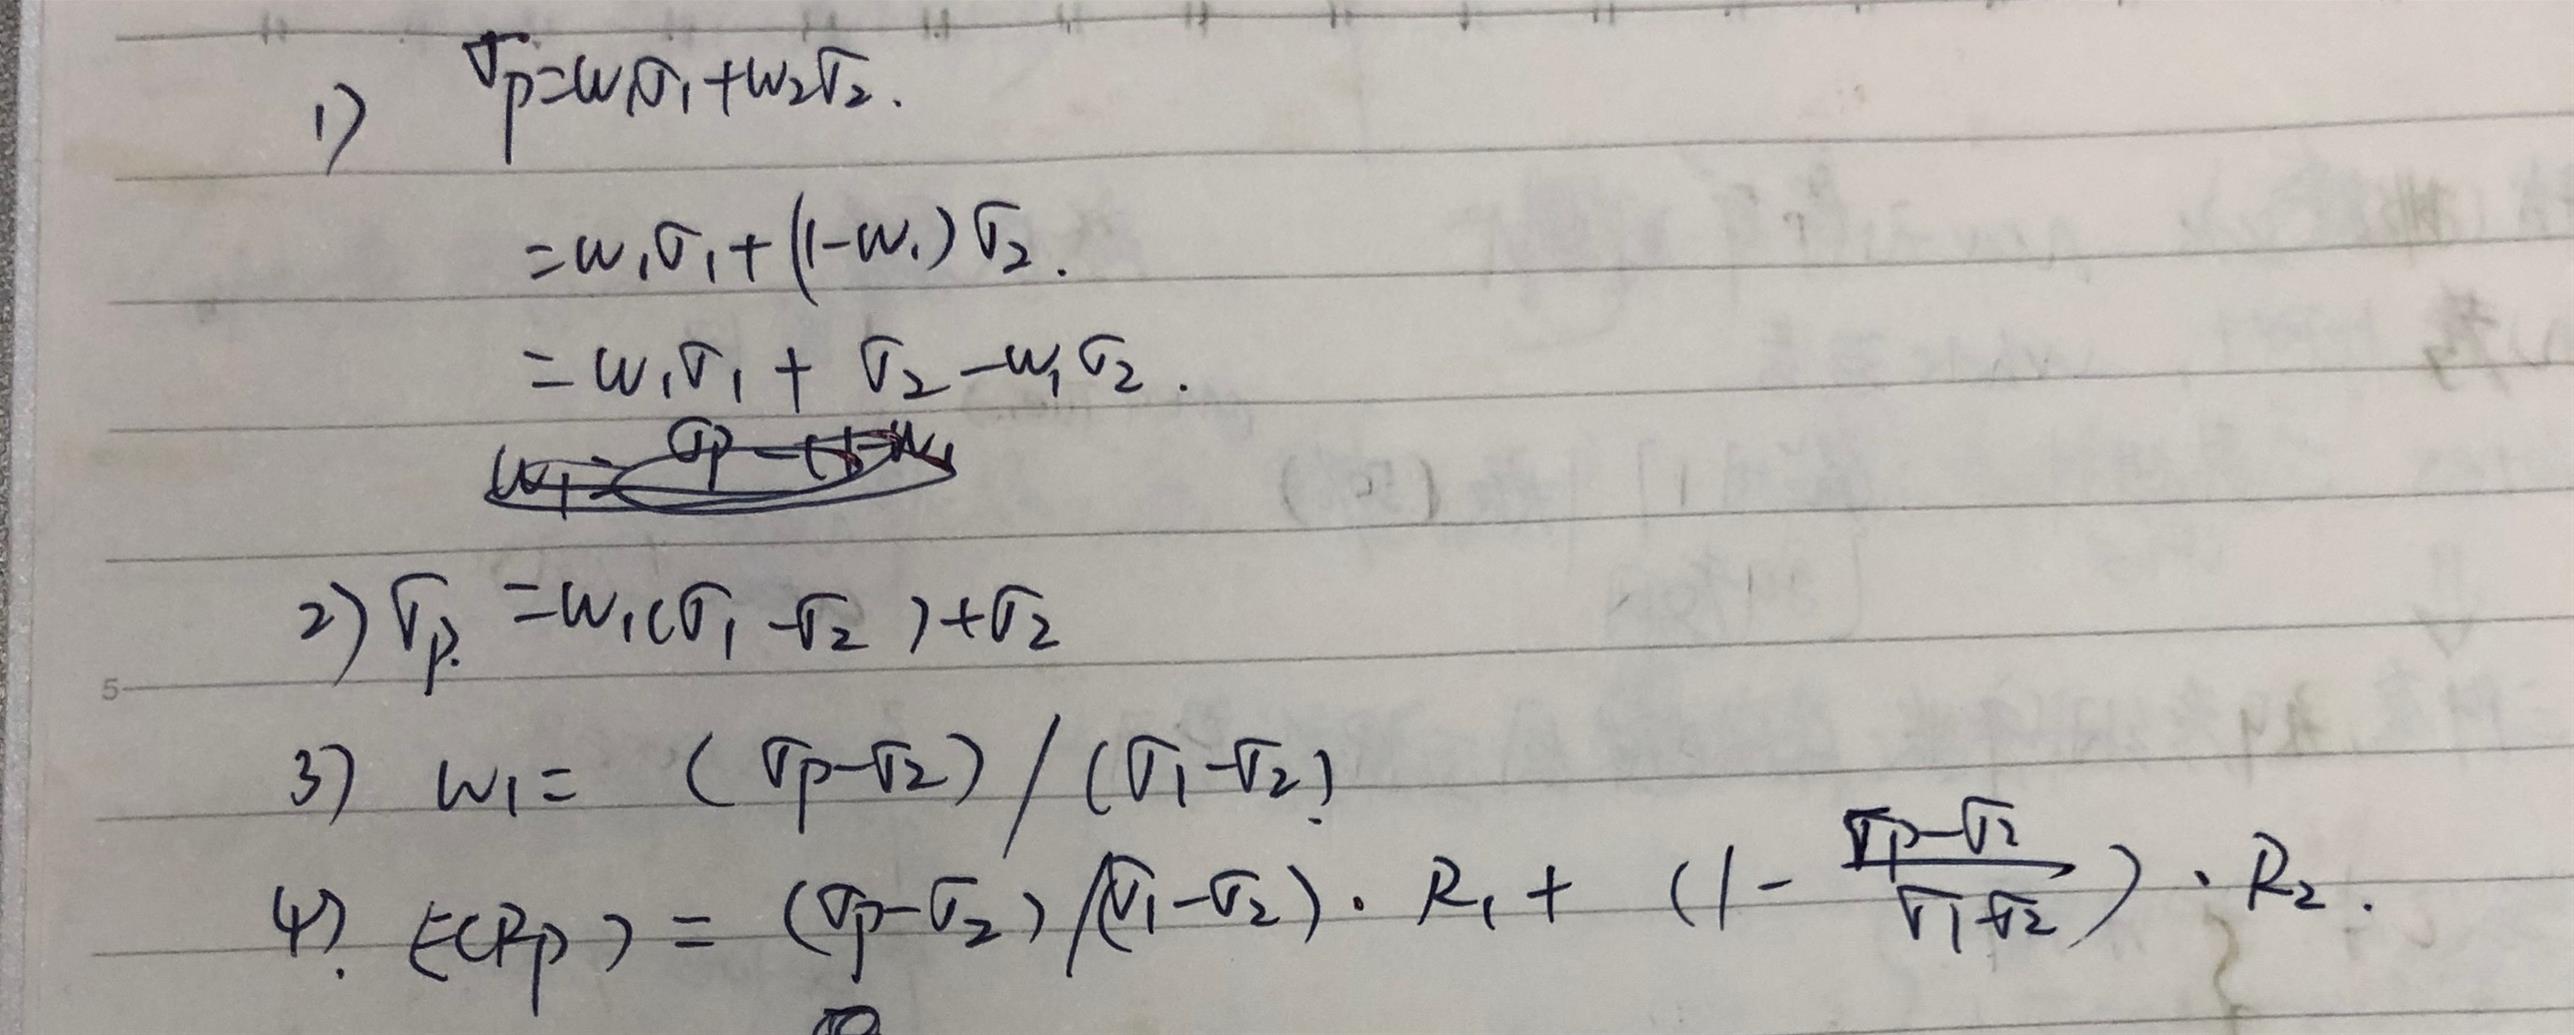 1) σp=w1σ1+w2σ2.
=w1σ1+(1-w1)σ2.
=w1σ1+σ2-w1σ2.
2) σp.=w1(σ1-σ2)+σ2
5
3) w1=(σp-σ2)/(σ1-σ2).
4). E(Rp)=(σp-σ2)/(σ1-σ2)·R1+(1-\frac{σp-σ2}{σ1-σ2})·R2.